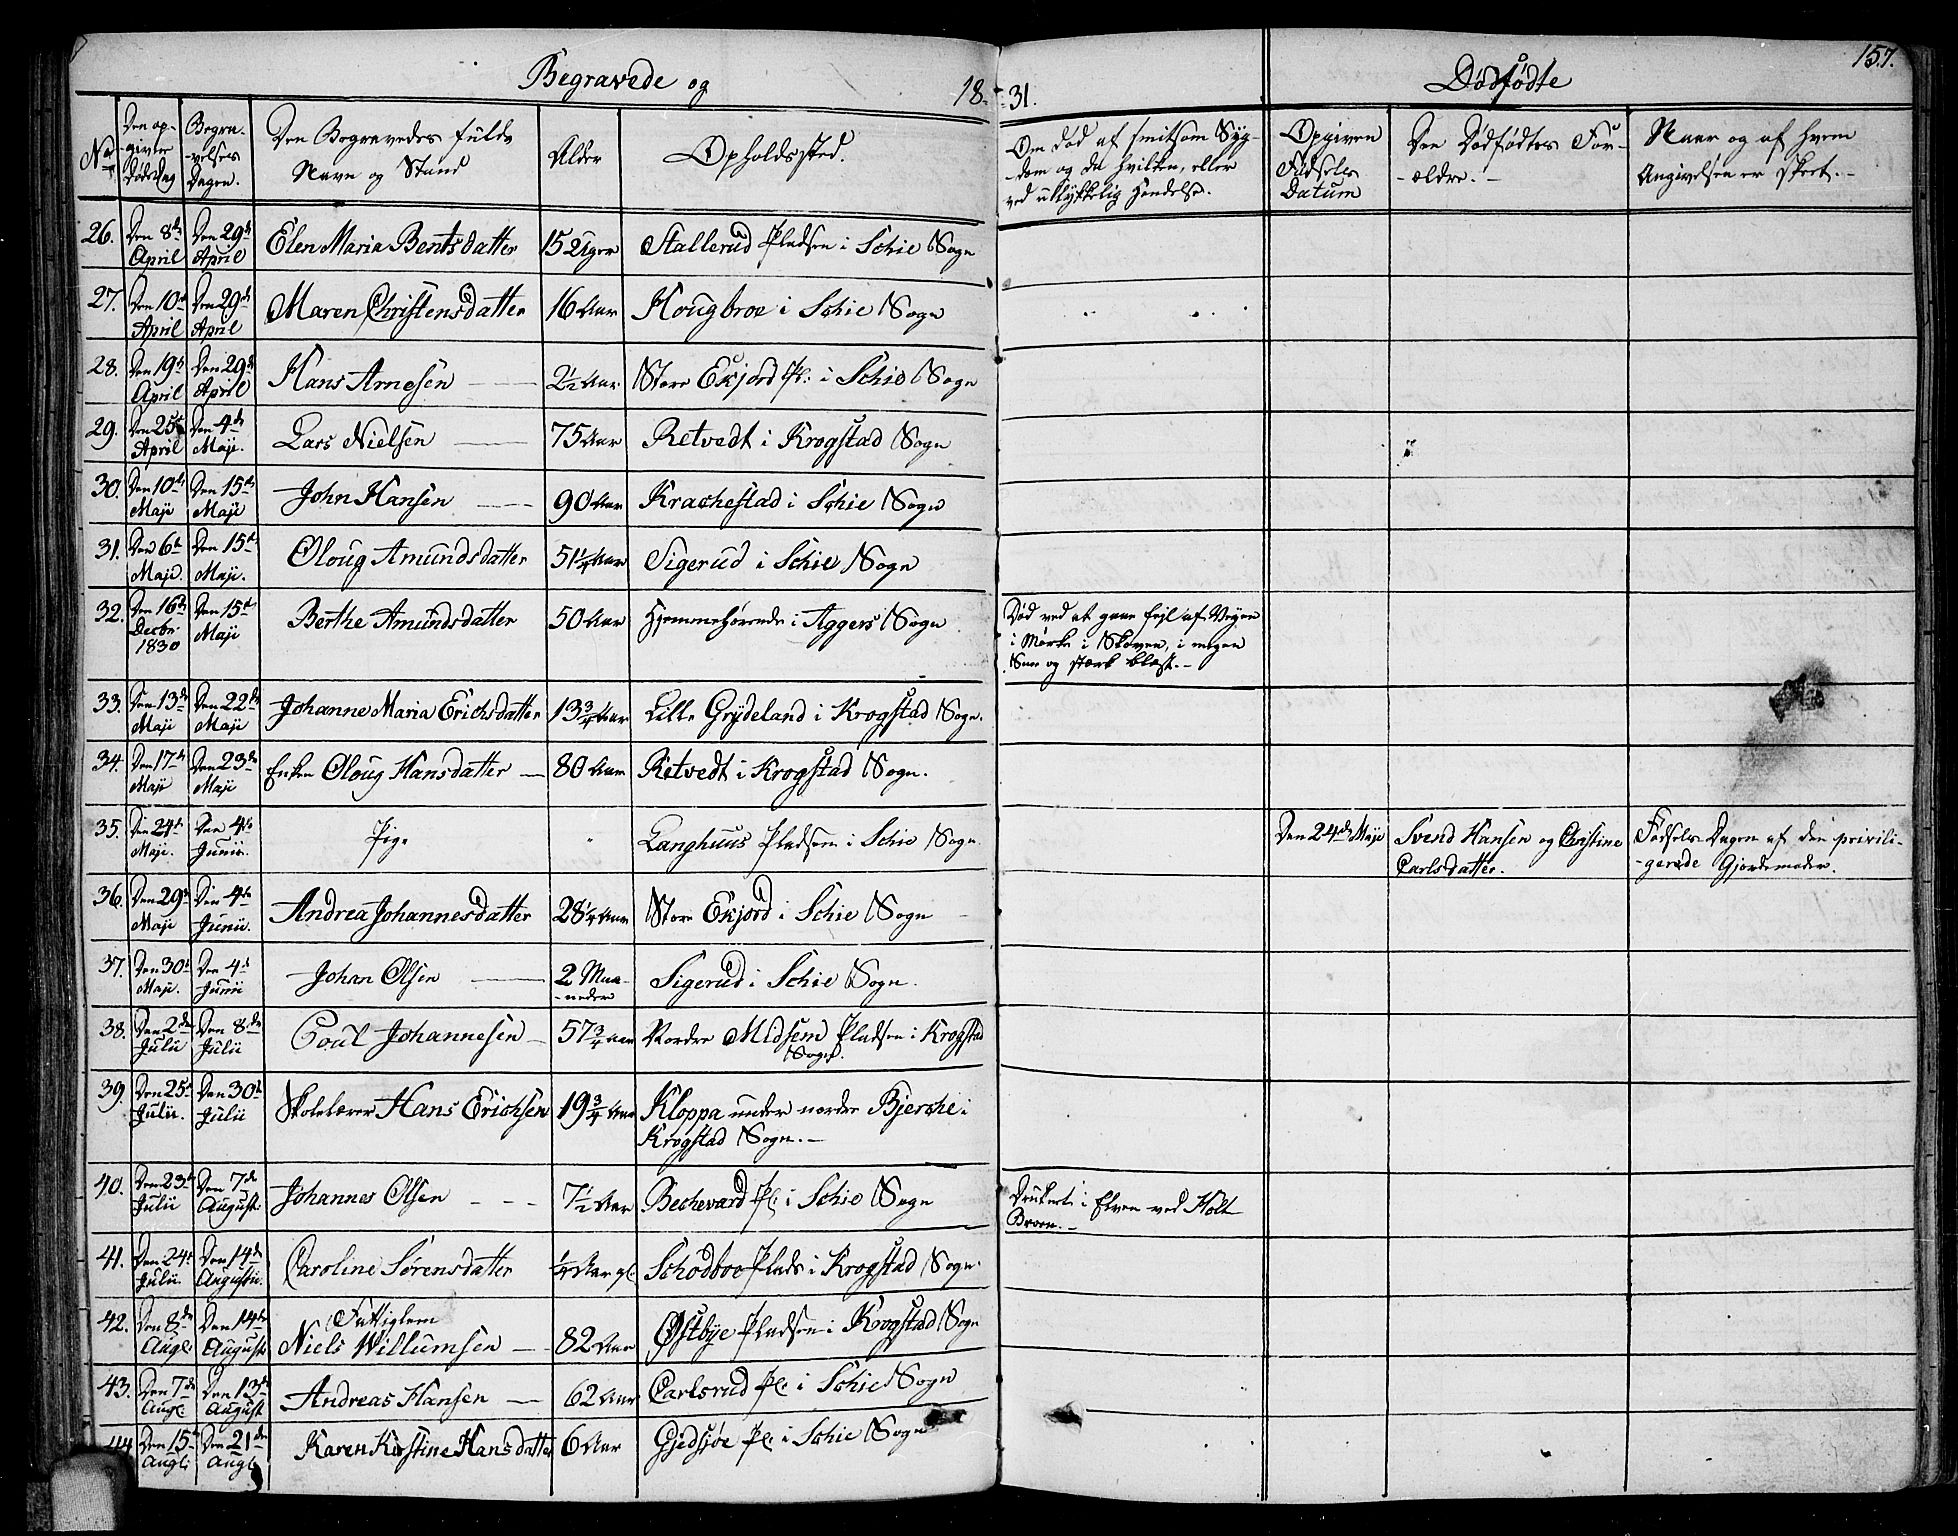 157.
Begravede og 18-31. Dødfødte
No Den opgivne Dødsdag Begravelses Dagen. Den Begravedes fulde Navn og Stand Alder Opholdssted. Om død af smitsom Sygdom og da hvilken, eller ved ulykkelig Hændelse. Opgiven Fødsels Datum Den Dødfødtes Forældre. Naar og af hvem Angivelsen er skeet.
26. Den 8de April Den 29de April Elen Maria Bentsdatter 15 Uger Stallerud Pladsen i Schie Sogn
27. Den 10de April Den 29de April Maren Christensdatter 16 Aar Hougbroe i Schie Sogn
28. Den 19de April Den 29de April Hans Arnesen 2½ Aar Store Ekjord Pl: i Schie Sogn
29. Den 25de April Den 4de Maji. Lars Nielsen 75 Aar Retvedt i Krogstad Sogn
30. Den 10de Maji Den 15de Maji John Hansen 90 Aar Krachestad i Schie Sogn
31. Den 6te Maji. Den 15de Maji. Oloug Amundsdatter 51¼ Aar Sigerud i Schie Sogn
32. Den 16de Decbr 1830 Den 15de Maji Berthe Amundsdatter 50 Aar Hjemmehørende i Aggers Sogn Død ved at gaae fejl af Vejen
i Mørke i Skoven, i megen
Snee og stærk blæst.-
33. Den 13de Maji Den 22de Maji Johanne Maria Erichsdatter 13¾ Aar Lille Grydeland i Krogstad Sogn.
34. Den 17de Maji Den 23de Maji Enken Oloug Hansdatter 80 Aar Retvedt i Krogstad Sogn.
35. Den 24de Maji. Den 4de Junii. Pige " Langhuus Pladsen i Schie Sogn. Den 24de Maji Svend Hansen og Christine Carlsdatter. Fødsels-Dagen af den privili-
-gerede Gjordemoder.
36. Den 29de Maji Den 4de Junii. Andrea Johannesdatter 28¼ Aar Store Ekjord i Schie Sogn
37. Den 30te Maji. Den 4de Junii Johan Olsen 2 Maaneder Sigerud i Schie Sogn.
38. Den 2den Julii Den 8de Julii Poul Johannesen 57¾ Aar Nordre Midsem Pladsen i Krogstad
Sogn.
39. Den 25de Julii. Den 30te Julii Skolelærer Hans Erichsen 19¾ Aar Kloppa under nordre Bjerche i
Krogstad Sogn.-
40. Den 23de Julii Den 7de August Johannes Olsen 7½ Aar Bechevard Pl: i Schie Sogn Druknet i Elven ved Holt
Broen.-
41. Den 24de Julii Den 14de Augusti. Caroline Sørensdatter ¼ Aar gl. Schodboe Plads i Krogstad Sogn.
42. Den 8de Augl: Den 14de August Fattiglem
Niels Willumsen 82 Aar Østbye Pladsen i Krogstad Sogn
43. Den 7de Augl: Den 13de August Andreas Hansen 62 Aar Carlsrud Pl: i Schie Sogn
44 Den 15de Augl: Den 21de Augl: Karen Kirstine Hansdatter 6 Aar Gjedsjøe Pl: i Schie Sogn